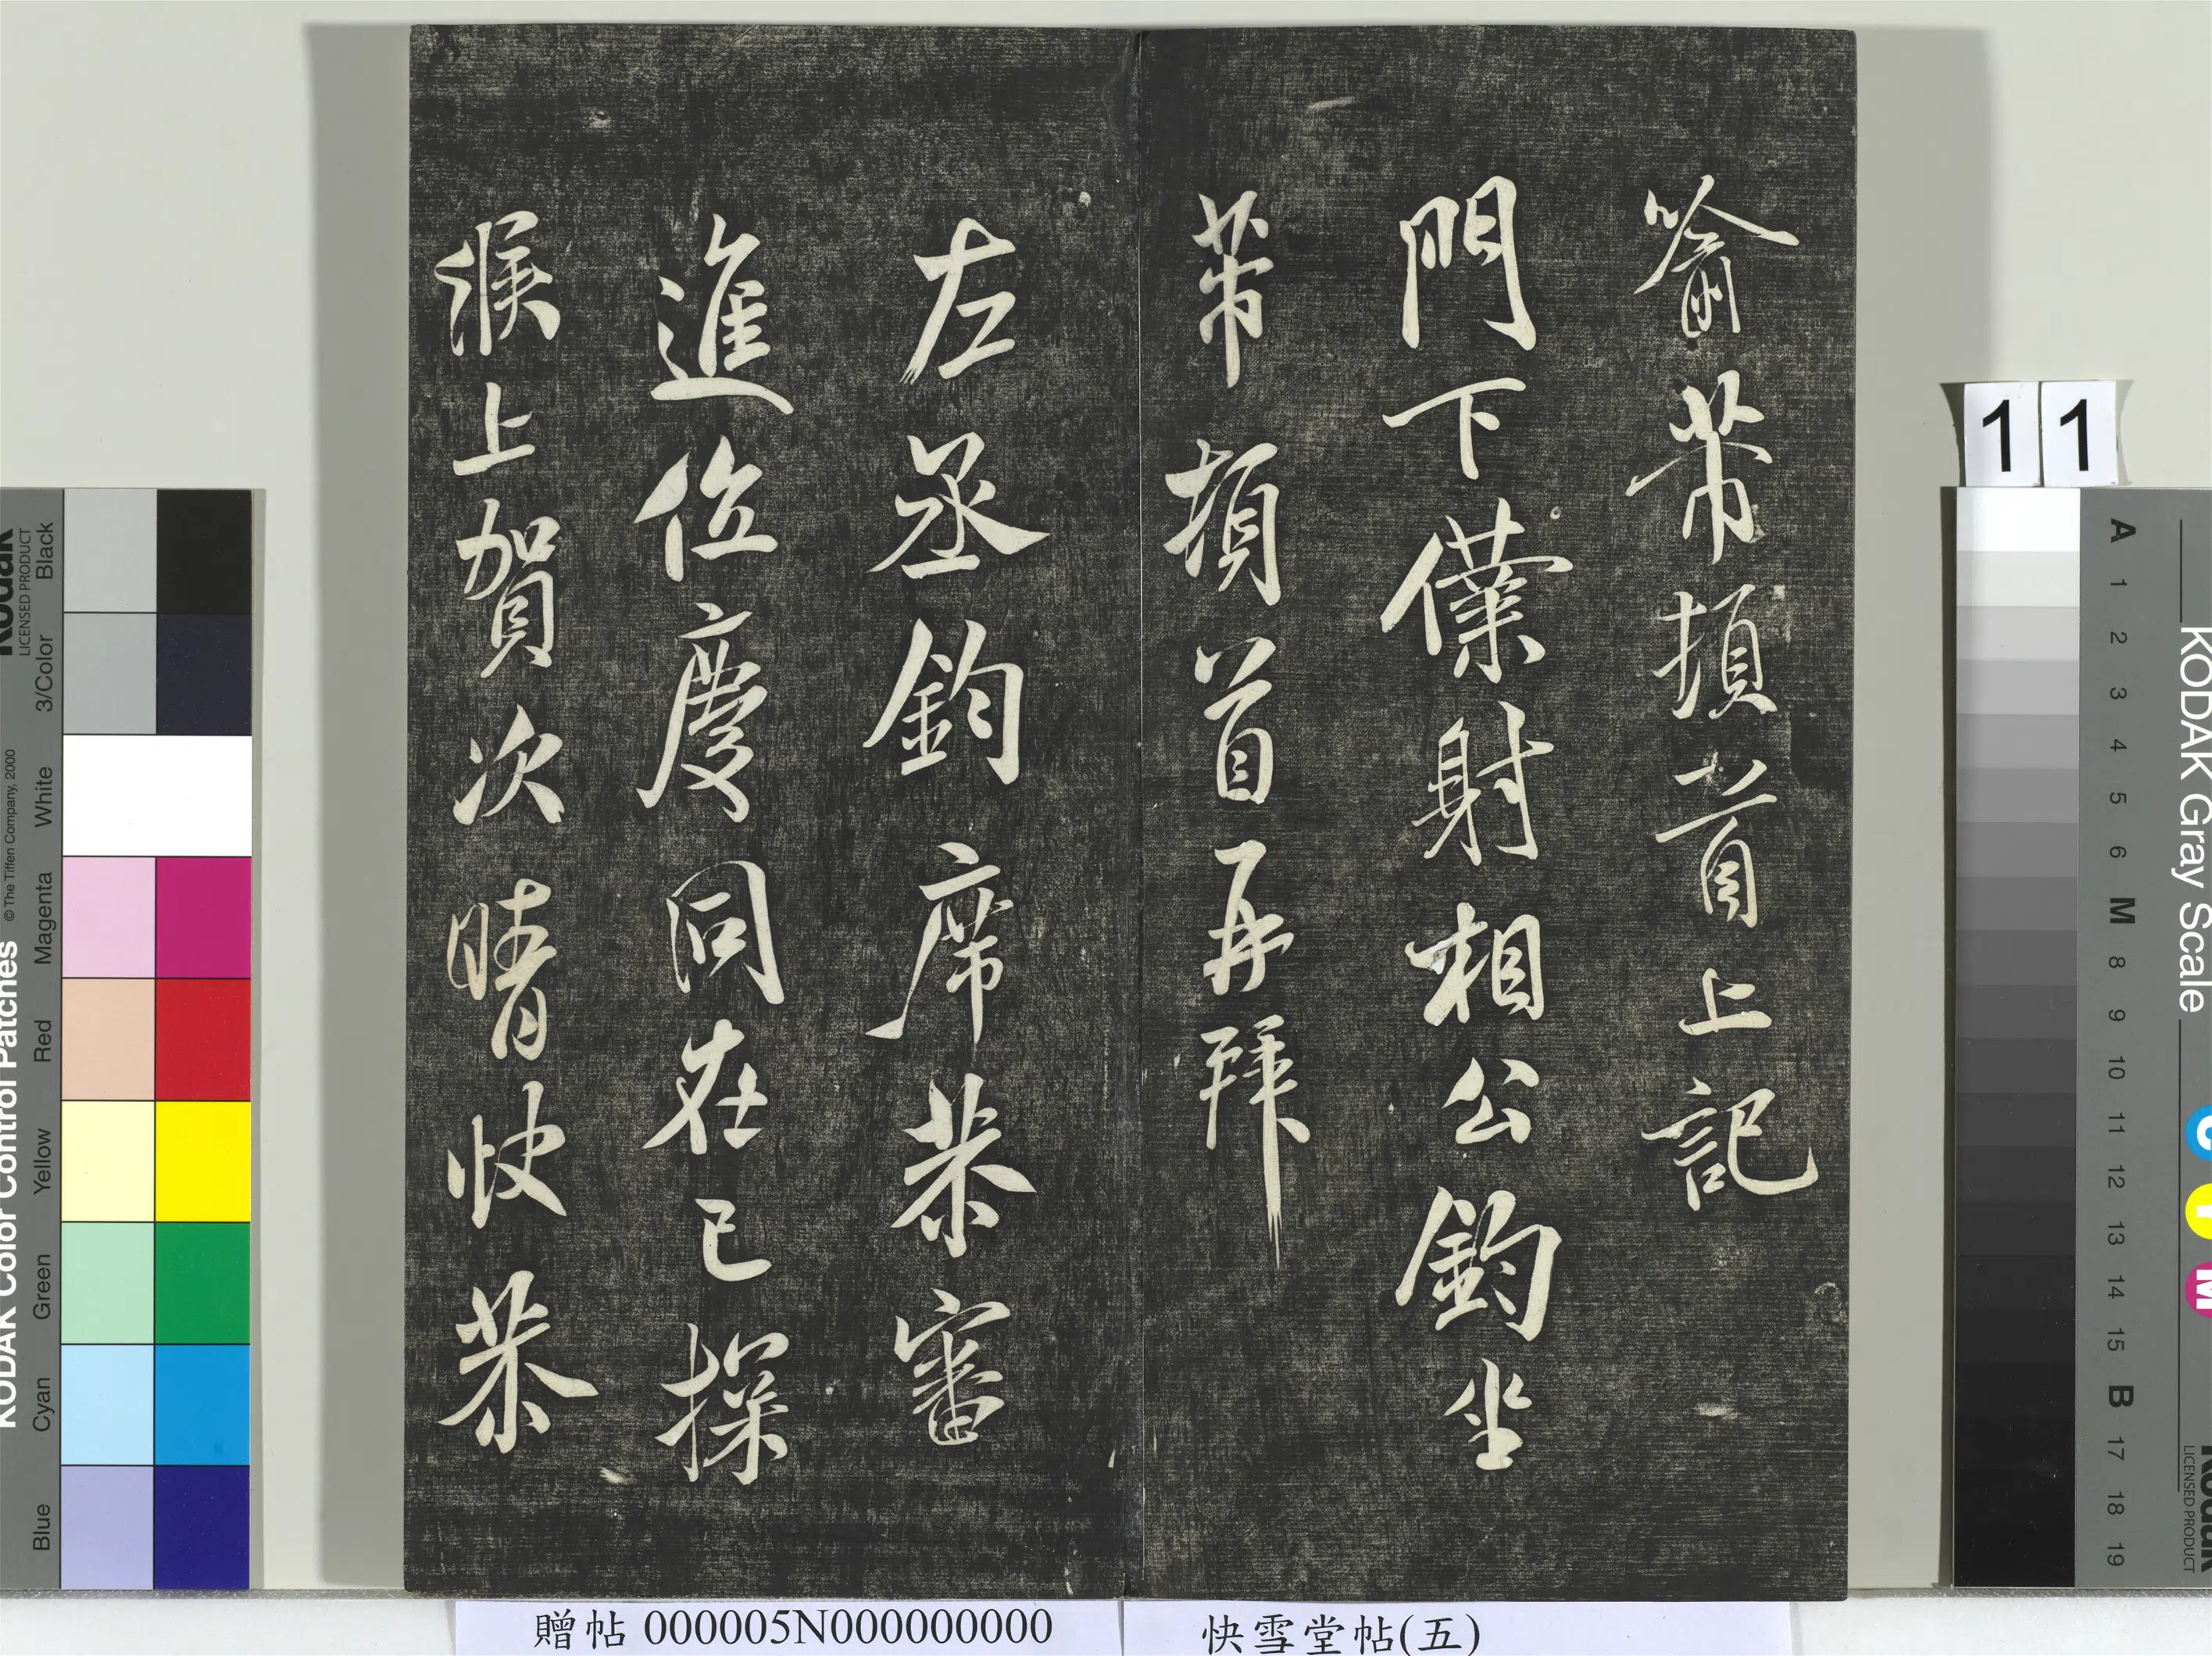 喻芾頓首上記
門下僕射相公鈞坐
芾頓首再拜
左丞鈞席恭審
進位慶同在已探
候上賀次晴快恭
贈帖 000005N000000000
快雪堂帖(五)
11
KODAK Color Control Patches
© The Tiffen Company, 2000
Kodak
LICENSED PRODUCT
Blue
Cyan
Green
Yellow
Red
Magenta
White
3/Color
Black
KODAK Gray Scale
C
Y
M
Kodak
LICENSED PRODUCT
A 1 2 3 4 5 6 M 8 9 10 11 12 13 14 15 B 17 18 19